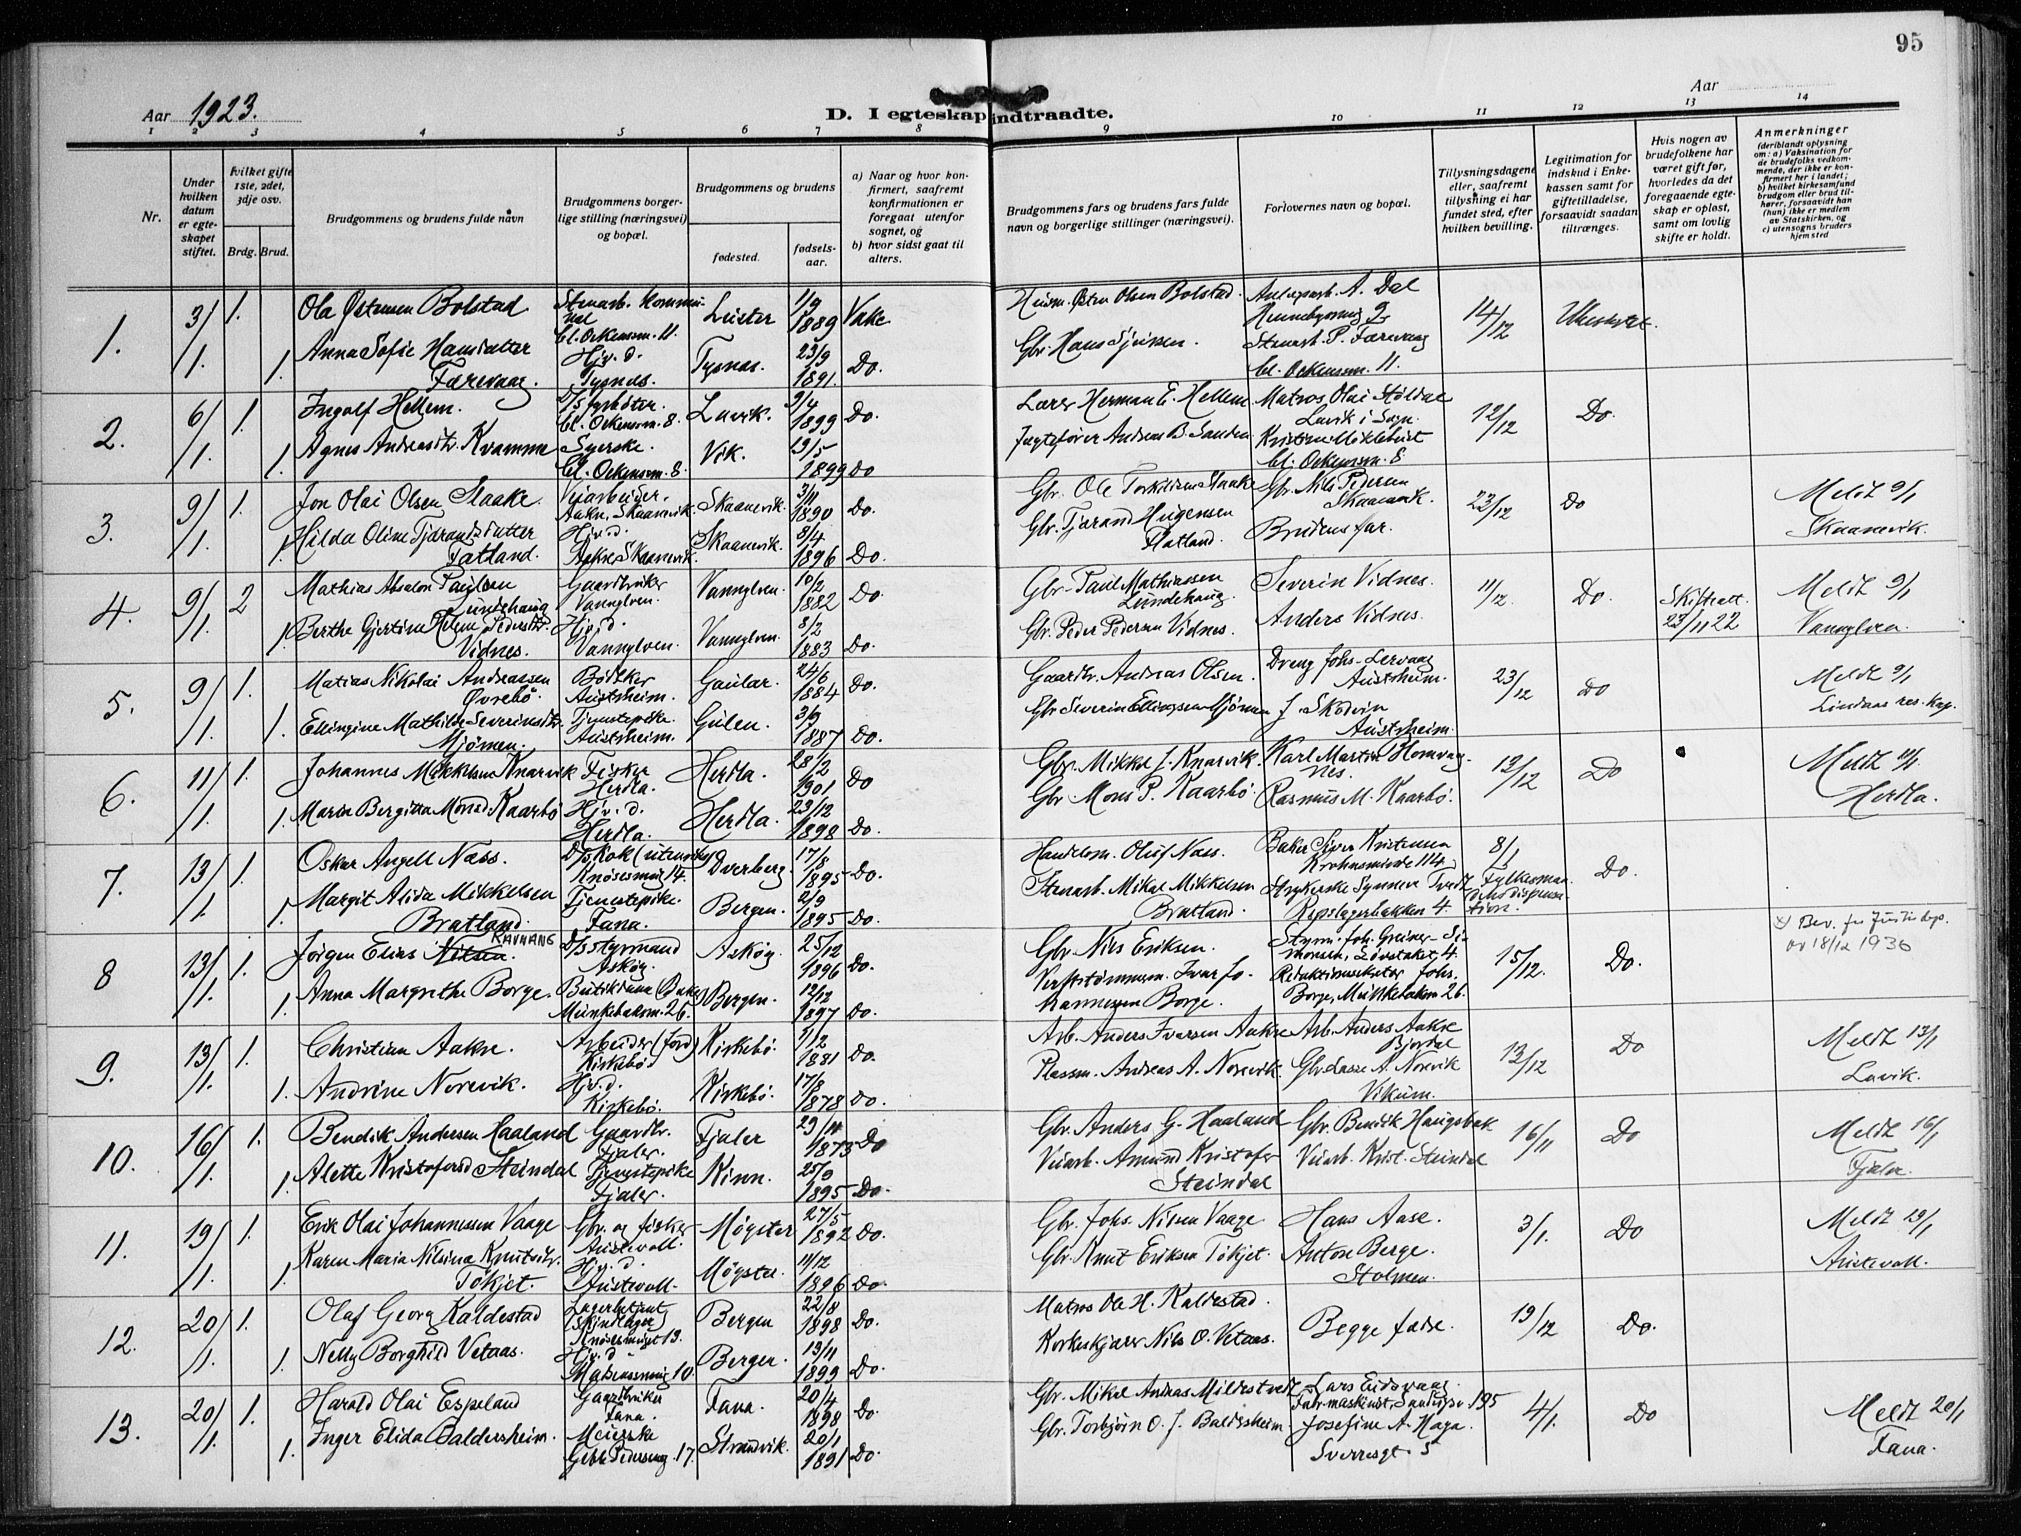 95
Aar 1923.
D. I egteskap indtraadte.
Aar
1 2 3 4 5 6 7 8 9 10 11 12 13 14
Nr.
Under hvilken datum er egteskapet stiftet.
Hvilket gifte 1ste, 2det, 3dje osv.
Brdg. Brud.
Brudgommens og brudens fulde navn
Brudgommens borgerlige stilling (næringsvei) og bopæl.
Brudgommens og brudens
fødested.
fødselsaar.
a) Naar og hvor konfirmert, saafremt konfirmationen er foregaat utenfor sognet, og
b) hvor sidst gaat til alters.
Brudgommens fars og brudens fars fulde navn og borgerlige stillinger (næringsvei).
Forlovernes navn og bopæl.
Tillysningsdagene eller, saafremt tillysning ei har fundet sted, efter hvilken bevilling.
Legitimation for indskud i Enkekassen samt for giftetilladelse, forsaavidt saadan tiltrænges.
Hvis nogen av brudefolkene har været gift før, hvorledes da det foregaaende egteskap er opløst, samt om lovlig skifte er holdt.
Anmerkninger
(deriblandt oplysning om: a) Vaksination for de brudefolks vedkommende, der ikke er konfirmert her i landet;
b) hvilket kirkesamfund brudgom eller brud tilhører, forsaavidt han (hun) ikke er medlem av Statskirken, og
c) utensogns bruders hjemsted
1. 3/1. 1. Ola Østensen Bolstad Luster 1/9 1889 Heism. Østen Olsen Bolstad. A. Dal 14/12
1. Anna Sofie Hansdatter Færevaag. Hjv. d. Tysnes. Tysnes. 23/9 1891. Do. Gbr. Hans P. Færevaag
2. 6/1. 1. Ingolf Hellem. Lavik. 9/4 1899 Do. Lærer Herman E. Hellem Matros Olai Lavik i Sogn 12/12 Do.
1. Agnes Andreasdtr. Kvamme Syerske Vik. 13/5 1899 Do Jagtefører Andreas B. Sanden Kristine Miklebust
3. 9/1. 1. Jon Olai Olsen Slaake. Veiarbeider. Aakre, Skaanevik. Skaanevik. 3/11 1890 Do. Gbr. Ole Torkildsen Slaake Gbr. Nils Pedersen Skaanevik. 23/12 Do Meldt 9/1 Skaanevik.
1. Hilda Oline Tjarandsdatter Fatland. Hjv. d. Aakre Skaanevik. Skaanevik. 8/4 1896 Do. Gbr. Tjarand Fatland. Brudens far.
4. 9/1. 2 Mathias Absalon Paulsen Lundehaug Gaardbruker Vannylven. Vannylven. 10/2 1882 Do. Gbr. Paul Mathiassen Lundehaug. Severin Vidnes. 11/12. Do. Skifteatt. 23/11 22 Meldt 9/1 Vannylven.
1. Berthe Gjertine Helene Pedersdtr. Vidnes. Hjv. d. Vannylven. Vannylven. 8/2 1883 Do. Gbr. Peder Pedersen Vidnes. Anders Vidnes.
5. 9/1. 1. Matias Nikolai Andreassen Øvrebø. Bødker Austrheim. Gaular. 24/6 1884 Do. Gaardbr. Andreas Olsen. Dreng Johs. Lervaag Austrheim. 23/12 Do Meldt 9/1 Lindaas res. kap.
1. Ellingine Mathilde Severinsdtr. Mjømen. Tjenestepike. Austrheim. Gulen. 3/9 1887 Do. Gbr. Severin Ellingsen Mjømen J. Skodvin Austrheim.
6. 11/1. 1. Johannes Mikkelsen Knarvik Fisker Herdla. Herdla. 28/2 1901 Do Gbr. Mikkel J. Knarvik. Karl Martin 12/12 Do Meldt 11/1 Herdla.
1. Maria Bergitta Monsd. Kaarbø Hjv. d. Herdla. Herdla. 23/12 1898 Do. Gbr. Mons P. Kaarbø. Rasmus M. Kaarbø.
7. 13/1. 1. Oskar Angell Næss. D/s Kok Knøsesmug 14. Dverberg. 17/8 1895 Do. Handelsm. Oluf Næss. Baker Siver Kristensen Krohnsminde 114 8/1 Fylkesmandens dispensation. Do.
1. Margit Alida Mikkelsen Bratland. Tjenestepike. Fana. Bergen. 2/9 1895 Do. Stenarb. Mikal Mikkelsen Bratland. Strykerske Synneve Tvedt Repslagerbakken 4.
8 13/1. 1. Jørgen Elias Nilsen. RAVNANG D/s styrmand Askøy. Askøy. 25/12 1896 Do. Gbr. Nils Eriksen. Styrm. Joh. Greiner Simonsen, Løvstaket 4. 15/12. Do. x) Bev. fra Justisdep. av 18/12 1936
1. Anna Margrethe Borge. Munkebaksm. 26. Bergen. 12/12 1897 Do. Verftstømmerm. Ivar Johannessen Borge. Redaktionssekretær Johs. Borge, Munkebaksm 26.
9. 13/1. 1. Christian Aakre. Arbeider (jord) Kirkebø. Kirkebø. 1/2 1881 Do. Arb. Anders Ivarsen Aakre Arb. Anders Aakre Bjordal 13/12 Do Meldt 13/1 Lavik.
1. Andrine Norevik. Hjv. d. Kirkebø. Kirkebø. 17/8 1878 Do. Plassm. Andreas A. Norevik. Gbr. Lasse A. Norevik Vikum.
10. 16/1. 1. Bendik Andersen Haaland Gaardbr. Fjaler. Fjaler 1873 Do Gbr. Anders G. Haaland Gbr. Bendik Haugsbak 16/11 Do Meldt 16/1 Fjaler.
1. Alette Kristofersd Steindal Tjenestepike Fjaler. Kinn. 25/9 1895 Do. Veiarb. Amund Kristofer Steindal Veiarb. Krist. Steindal
11. 19/1. 1. Erik Olai Johannessen Vaage Gbr. og fisker Austevoll. Møgster 27/5 1892 Do. Gbr. Johs. Nilsen Vaage Hans Aase. 3/1. Do Meldt 19/1 Austevoll.
1. Karen Maria Nilsine Knutsdtr. Tøkjet. Hjv. d. Austevoll. Møgster. 11/12 1896 Do. Gbr. Knut Eriksen Tøkjet. Anton Berge. Stolmen.
12. 20/1. 1. Olaf Georg Kaldestad Lagerbetjent (Skindlager) Knøsesmuget 13. Bergen 22/8 1898 Do. Matros Ole H. Kaldestad. Begge fædre. 19/12 Do.
1. Nelly Borghild Vetaas. Hjv. d. Bergen. 13/11 1899 Do. Korkeskjærer Nils O. Vetaas.
13. 20/1. 1. Harald Olai Espeland Gaardbruker Fana. Fana. 20/4 1898 Do. Gbr. Mikal Andreas Mildestvedt Lars Eidsvaag 4/1. Do Meldt 20/1 Fana.
1. Inger Elida Baldersheim. Meierske Strandvik. 20/1 1891 Do. Gbr. Torbjørn O. J. Baldersheim. Josefine A. Haga. Sverresgt. 5